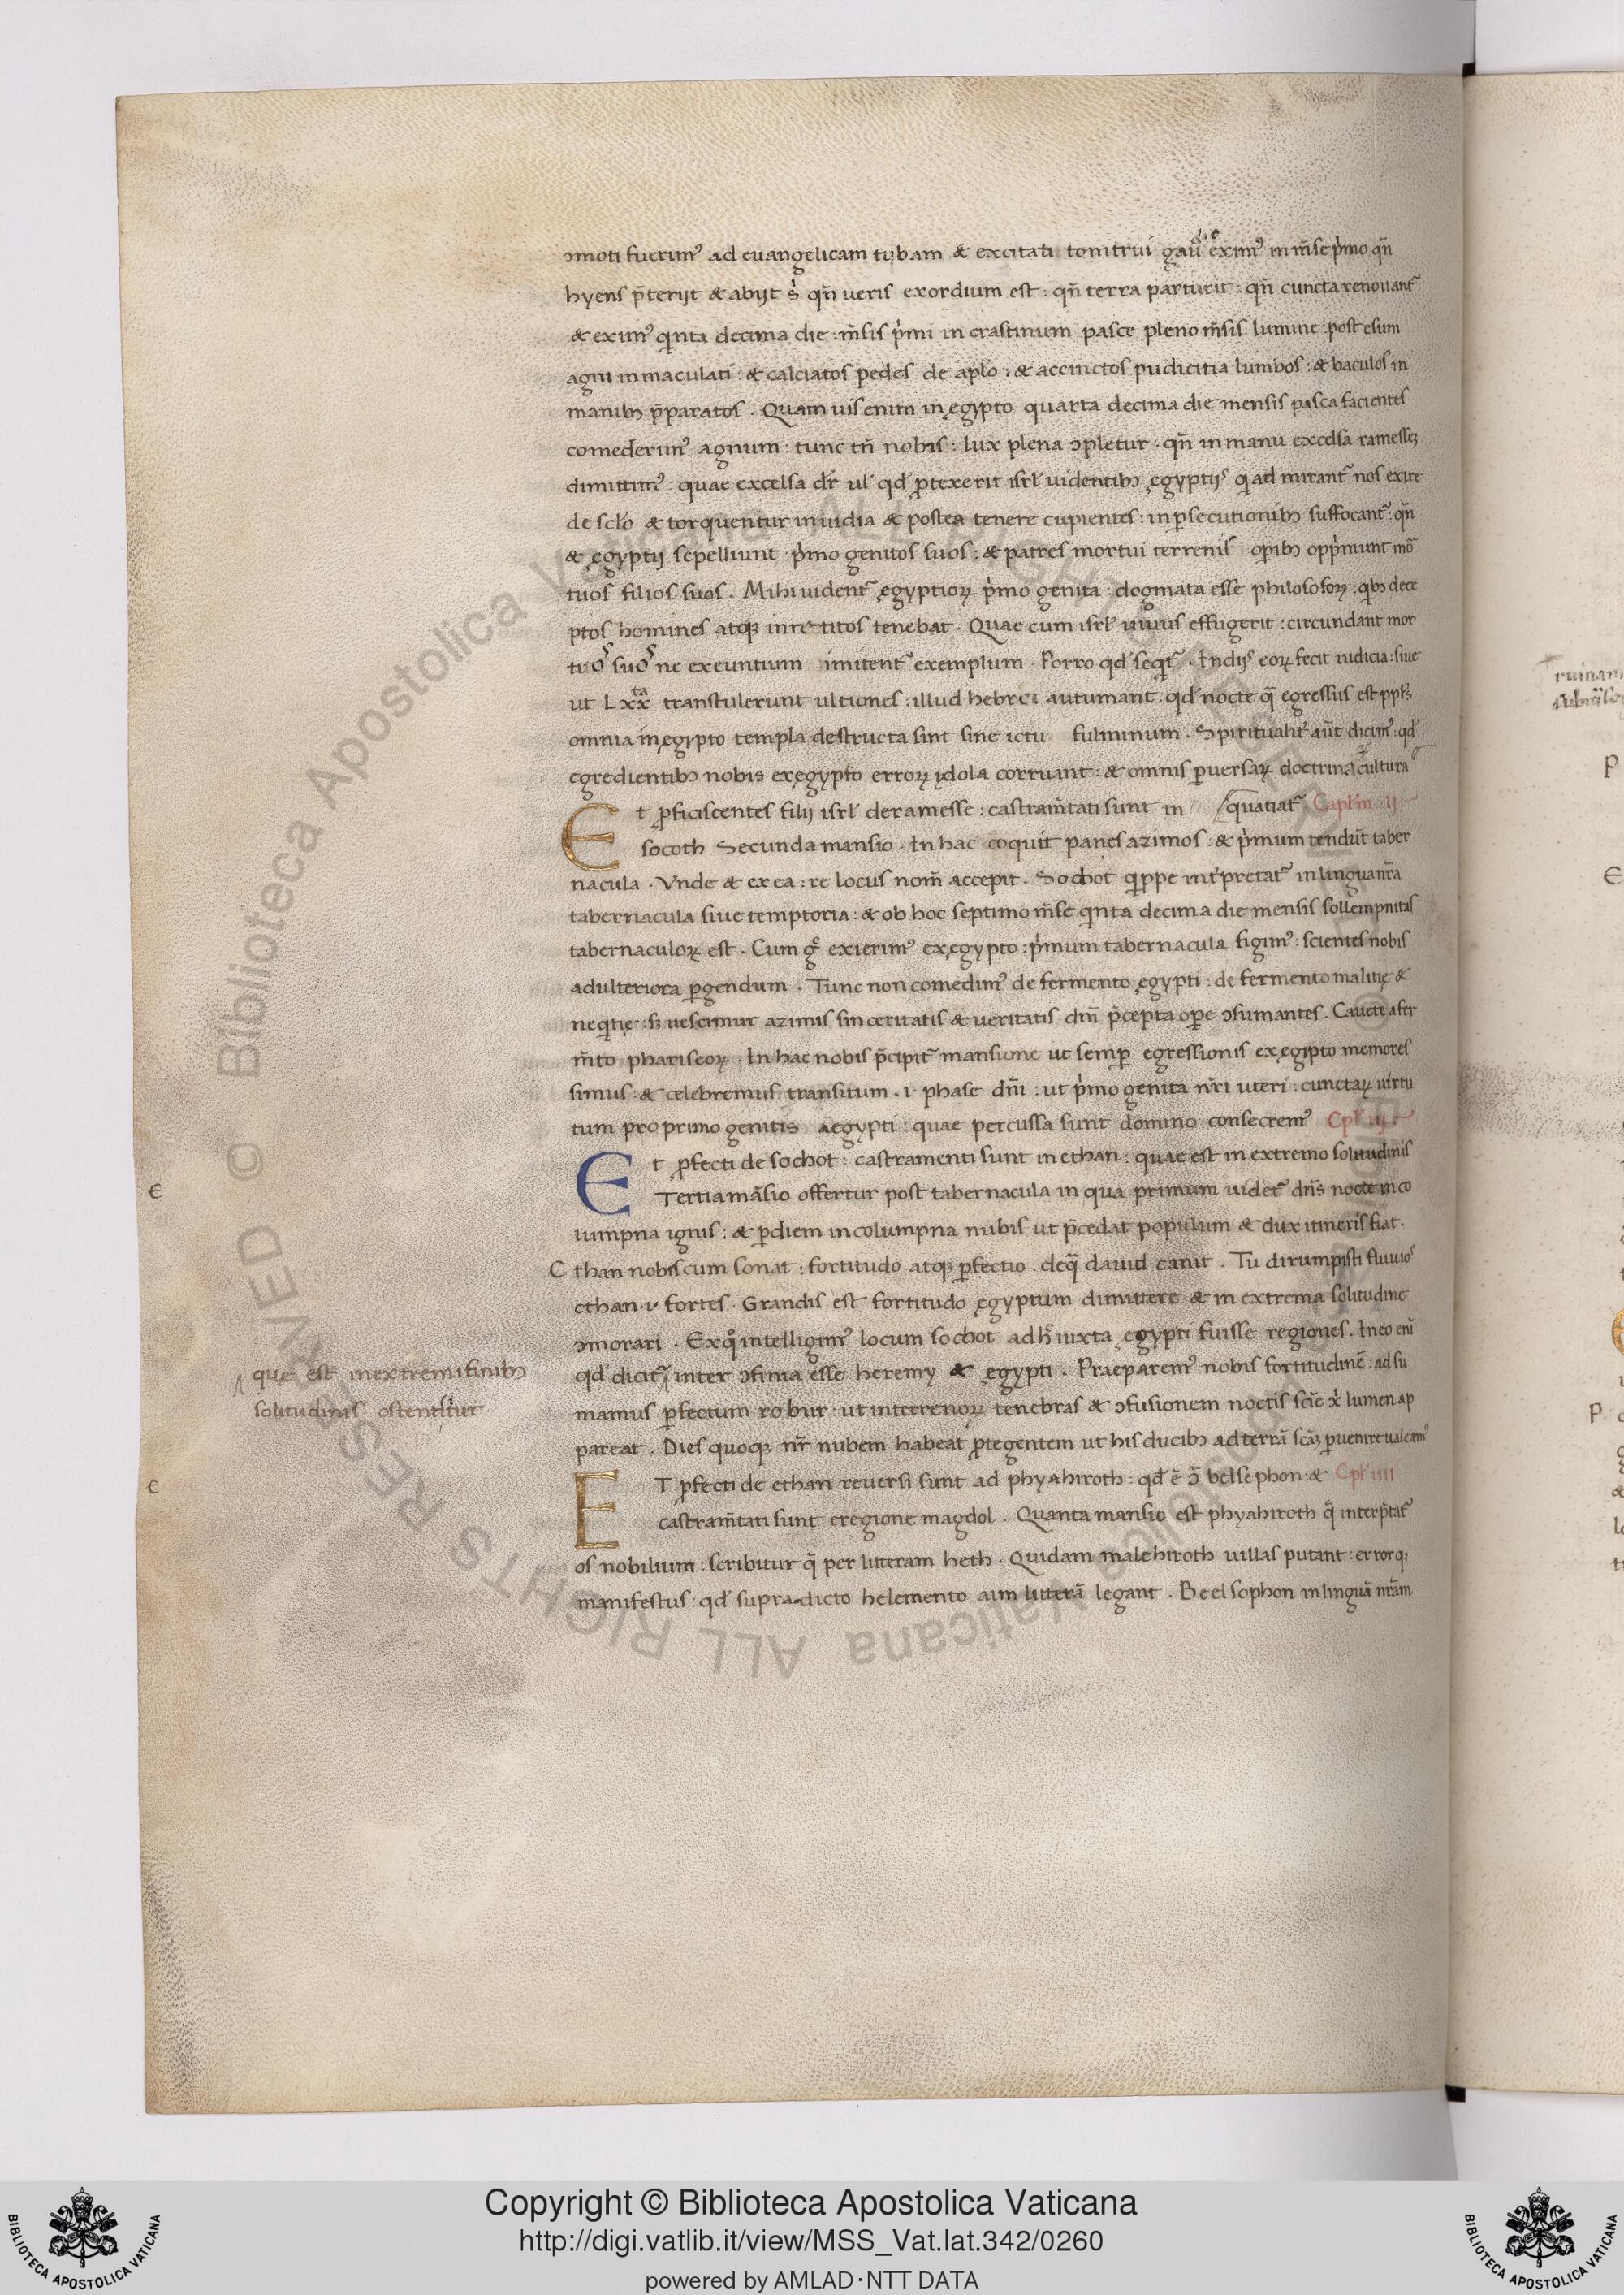 ↄmoti fuerimꝰ ad euangelicam tubam & excitati tonitrui gaū eximꝰ in m̄se pͥmo qn̄
hyenſ p̄terijt & abijt qn̄ ueriſ exordium est : qn̄ terra parturit : qn̄ cuncta renouant᷑
& eximꝰ qͥnta decima die : m̄ſis pͥmi in crastinum pasce pleno m̄ſis lumine : post eſum
agni inmaculati : & calciatoſ pedeſ de aplo : & accinctoſ pudicitia lumboſ : & baculoſ in
manibꝫ p̄paratoſ . Quam uiſ enim in ęgypto quarta decima die mensiſ paſca facienteſ
comederimꝰ agnum : tunc tn̄ nobiſ : lux plena ↄpletur . qn̄ in manu excelſa rameſſeꝫ
dimittimꝰ : quae excelſa dr̄ ul̓ qd̓ ꝓtexerit iſrl̓ uidentibꝫ ęgyptijꝰ qͥ ad mirant᷑ noſ exire
de ſclo & torquentur inuidia & postea tenere cupienteſ : in ꝑſecutionibꝫ ſuffocant᷑ : qn̄
& ęgyptij ſepelliunt : pͥmo genitoſ ſuoſ : & patreſ mortui terreniſ oꝑibꝫ oppͥmunt mo᷑
tuoſ filioſ ſuoſ . Mihi uident᷑ ęgyptioꝝ pͥmo genita : dogmata eſſe philoſofoꝝ : qͥbꝫ dece
ptoſ homineſ atqꝫ inretitoſ tenebat . Quae cum iſrl̓ uiuuſ effugerit : circundant mor
tuoſ ſuoſ ne exeuntium imitent᷑ exemplum . Porro qd̓ ſeqͥt᷑ . In dijꝰ eoꝝ fecit iudicia : ſiue
ut Lxx transtulerunt ultioneſ : illud hebrei autumant : qd̓ nocte q̄ egreſſuſ eſt ppl̓s
omnia in ęgypto templa deſtructa ſint ſine ictu fulminum . Spiritualit᷑ aūt dicimꝰ : qd̓
egredientibꝫ nobis ex ęgypto erroꝝ ydola corruant : & omniſ ꝑuerſaꝝ doctrina cultura
Et ꝓficiscenteſ filij iſrl̓ de rameſſe : caſtram̄tati ſunt in quatiat᷑ Capl̓m ij
ſocoth Secunda mansio . In hac coquit paneſ azimoſ : & pͥmum tendūt taber
nacula . Vnde & ex ea : re locuſ nom̄ accepit . Sochot qͥppe int᷑pretat᷑ in lingua nr̄a
tabernacula ſiue temptoria : & ob hoc ſeptimo m̄ſe qͥnta decima die mensiſ ſollempnitaſ
tabernaculoꝝ eſt . Cum gͦ exierimꝰ ex ęgypto : pͥmum tabernacula figimꝰ : ſcienteſ nobiſ
ad ulteriora ꝑgendum . Tunc non comedimꝰ de fermento ęgypti : de fermento malitię &
neqͥtię : ſꝫ ueſcimur azimiſ ſinceritatiſ & ueritatiſ dni p̄cepta oꝑe ↄſumanteſ . Cauete a fer
m̄to phariſeoꝝ . In hac nobiſ p̄cipit᷑ manſione ut ſemꝑ egreſſioniſ ex ęgipto memoreſ
ſimuſ : & celebremuſ tranſitum . i . phaſe dn̄i : ut pͥmo genita nr̄i uteri : cunctaꝝ uirtu
tum pro primo genitis aegypti : quae percuſſa ſunt domino conſecremꝰ Cpl̓ iij
Et ꝓfecti de ſochot : caſtramenti ſunt in ethan : quae eſt in extremo ſolitudiniſ
Tertia māſio offertur poſt tabernacula in qua primum uidet᷑ dn̄s nocte in co
lumpna igniſ : & ꝑ diem in columpna nubiſ ut p̄cedat populum & dux itineriſ fiat .
Ethan nobiſcum ſonat : fortitudo atqꝫ ꝑfectio : de q̄ dauid canit . Tu dirumpiſti fluuioſ
ethan . i . forteſ . Grandiſ eſt fortitudo ęgyptum dimittere & in extrema ſolitudine
ↄmorari . Ex qͦ intelligimꝰ locum ſochot adh̓ iuxta ęgypti fuiſſe regioneſ . In eo eni̓
qd̓ dicit᷑ inter ↄfinia eſſe heremy & ęgypti . Praeparemꝰ nobiſ fortitudinē : adſu
que eſt in extremiſ finibꝫ
ſolitudiniſ oſtenditur
mamuſ ꝑfectum robur : ut inter renoꝝ tenebraſ & ↄfuſionem noctiſ ſciē xͥ lumen ap
pareat . Dieſ quoqꝫ nr̄ nubem habeat ꝓtegentem ut hiſ ducibꝫ ad terrā ſcāꝫ ꝑuenire ualeamꝰ
ET ꝓfecti de ethan reuerſi ſunt ad phyahiroth : qd̓ ē ↄ̄ belſephon : & Cpl̓ iiii
caſtram̄tati ſunt e regione magdol . Quanta manſio eſt phyahiroth q̄ interp̄tat᷑
oſ nobilium : ſcribitur q̄ per litteram heth . Quidam male hiroth uillaſ putant : error qꝫ
manifeſtuſ : qd̓ ſupra dicto helemento ain litterā legant . Beelſophon in linguā nr̄am
Є
Є
Copyright © Biblioteca Apostolica Vaticana
http://digi.vatlib.it/view/MSS_Vat.lat.342/0260
powered by AMLAD·NTT DATA
BIBLIOTECA APOSTOLICA VATICANA
BIBLIOTECA APOSTOLICA VATICANA
© Biblioteca Apostolica Vaticana ALL RIGHTS RESERVED